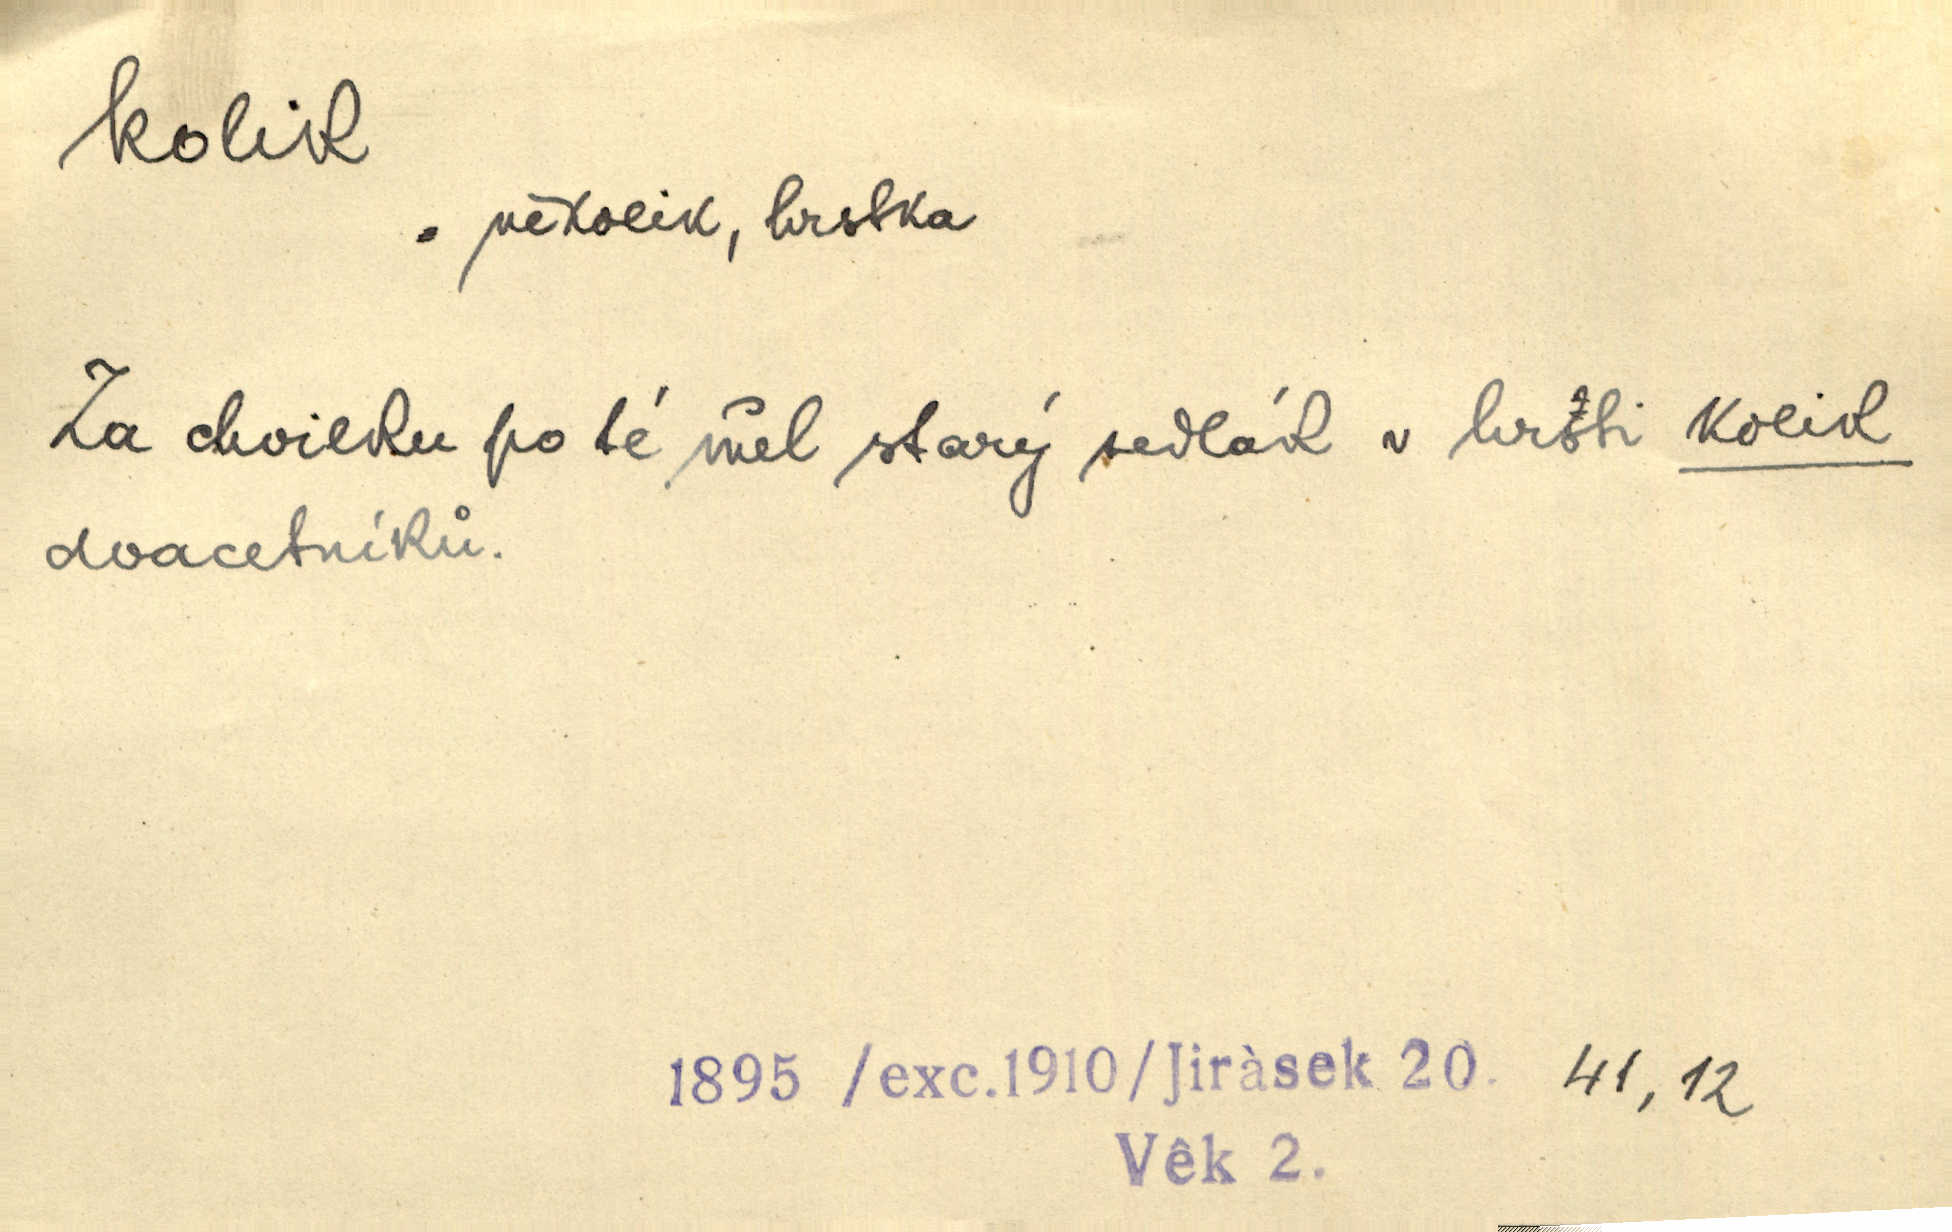 kolik
. několik, hrstka
Za chvilku po té měl starý sedlák v hršti kolik
dvacetníků.
1895 /exc.1910/Jiràsek 20. 41, 12
Vêk 2.